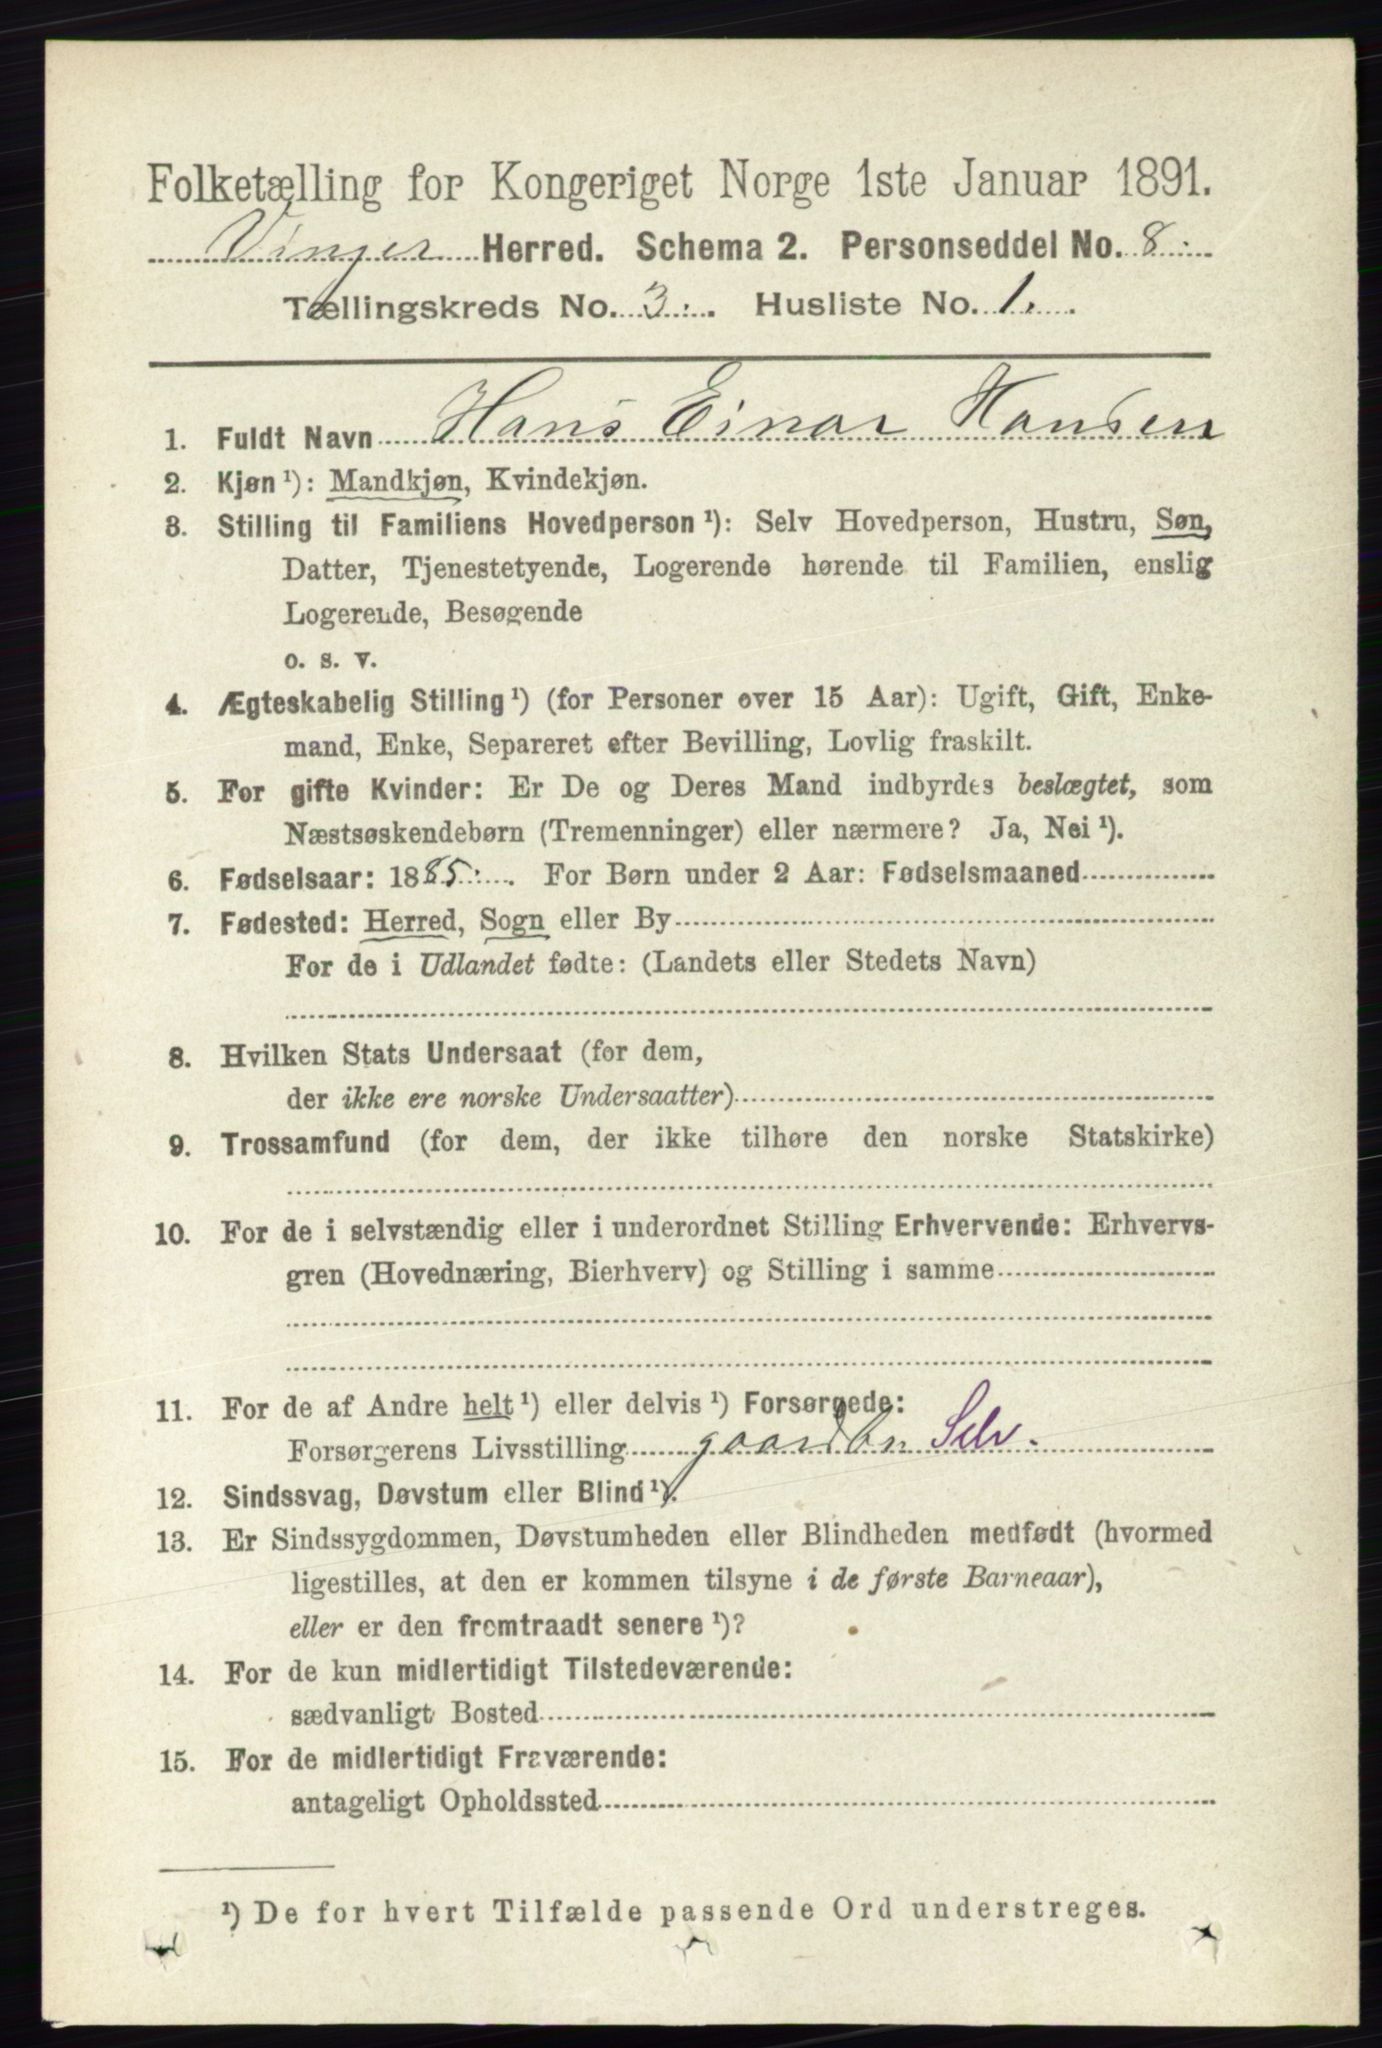 Folketælling for Kongeriget Norge 1ste Januar 1891.
Vinger Herred. Schema 2. Personseddel No. 8.
Tællingskreds No. 3. Husliste No. 1.
1. Fuldt Navn Hans Einar Hansen
2. Kjøn ¹): Mandkjøn, Kvindekjøn.
3. Stilling til Familiens Hovedperson ¹): Selv Hovedperson, Hustru, Søn,
Datter, Tjenestetyende, Logerende hørende til Familien, enslig
Logerende, Besøgende
o. s. v.
4. Ægteskabelig Stilling ¹) (for Personer over 15 Aar): Ugift, Gift, Enke-
mand, Enke, Separeret efter Bevilling, Lovlig fraskilt.
5. For gifte Kvinder: Er De og Deres Mand indbyrdes beslægtet, som
Næstsøskendebørn (Tremenninger) eller nærmere? Ja, Nei ¹).
6. Fødselsaar: 1885. For Børn under 2 Aar: Fødselsmaaned
7. Fødested: Herred, Sogn eller By
For de i Udlandet fødte: (Landets eller Stedets Navn)
8. Hvilken Stats Undersaat (for dem,
der ikke ere norske Undersaatter)
9. Trossamfund (for dem, der ikke tilhøre den norske Statskirke)
10. For de i selvstændig eller i underordnet Stilling Erhvervende: Erhvervs-
gren (Hovednæring, Bierhverv) og Stilling i samme
11. For de af Andre helt ¹) eller delvis ¹) Forsørgede:
Forsørgerens Livsstilling gaardbr Selv.
12. Sindssvag, Døvstum eller Blind ¹).
13. Er Sindssygdommen, Døvstumheden eller Blindheden medfødt (hvormed
ligestilles, at den er kommen tilsyne i de første Barneaar),
eller er den fremtraadt senere ¹)?
14. For de kun midlertidigt Tilstedeværende:
sædvanligt Bosted
15. For de midlertidigt Fraværende:
antageligt Opholdssted
¹) De for hvert Tilfælde passende Ord understreges.